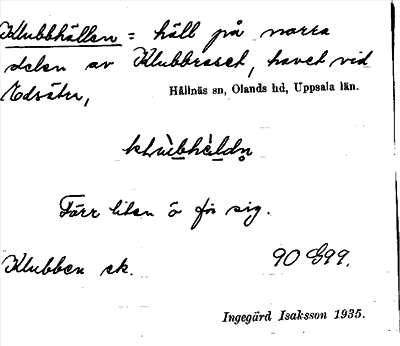 Klubbhällen = häll på norra
delen av Klubbraset, havet vid
Edsätra,
Hållnäs sn, Olands hd, Uppsala län.
Förr liten ö för sig.
Klubben ek. 90 G99.
Ingegärd Isaksson 1935.